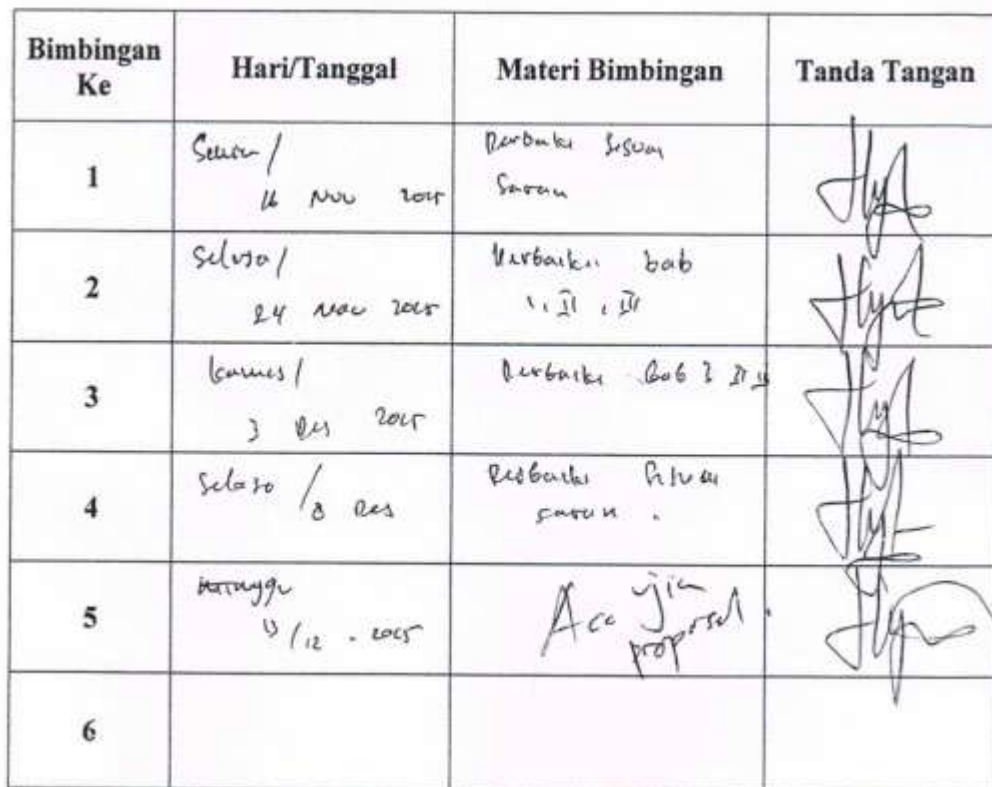 Bimbingan Ke
Hari/Tanggal
Materi Bimbingan
Tanda Tangan
1
Senin /
16 Nov 2015
Perbaiki sesuai
saran
2
Selasa /
24 Nov 2015
Perbaiki bab
I, II, III
3
Kamis /
3 Des 2015
Perbaiki bab I II III
4
Selasa / 8 Des
Perbaiki sesuai
saran.
5
Minggu
13/12 - 2015
Acc ujian
proposal.
6